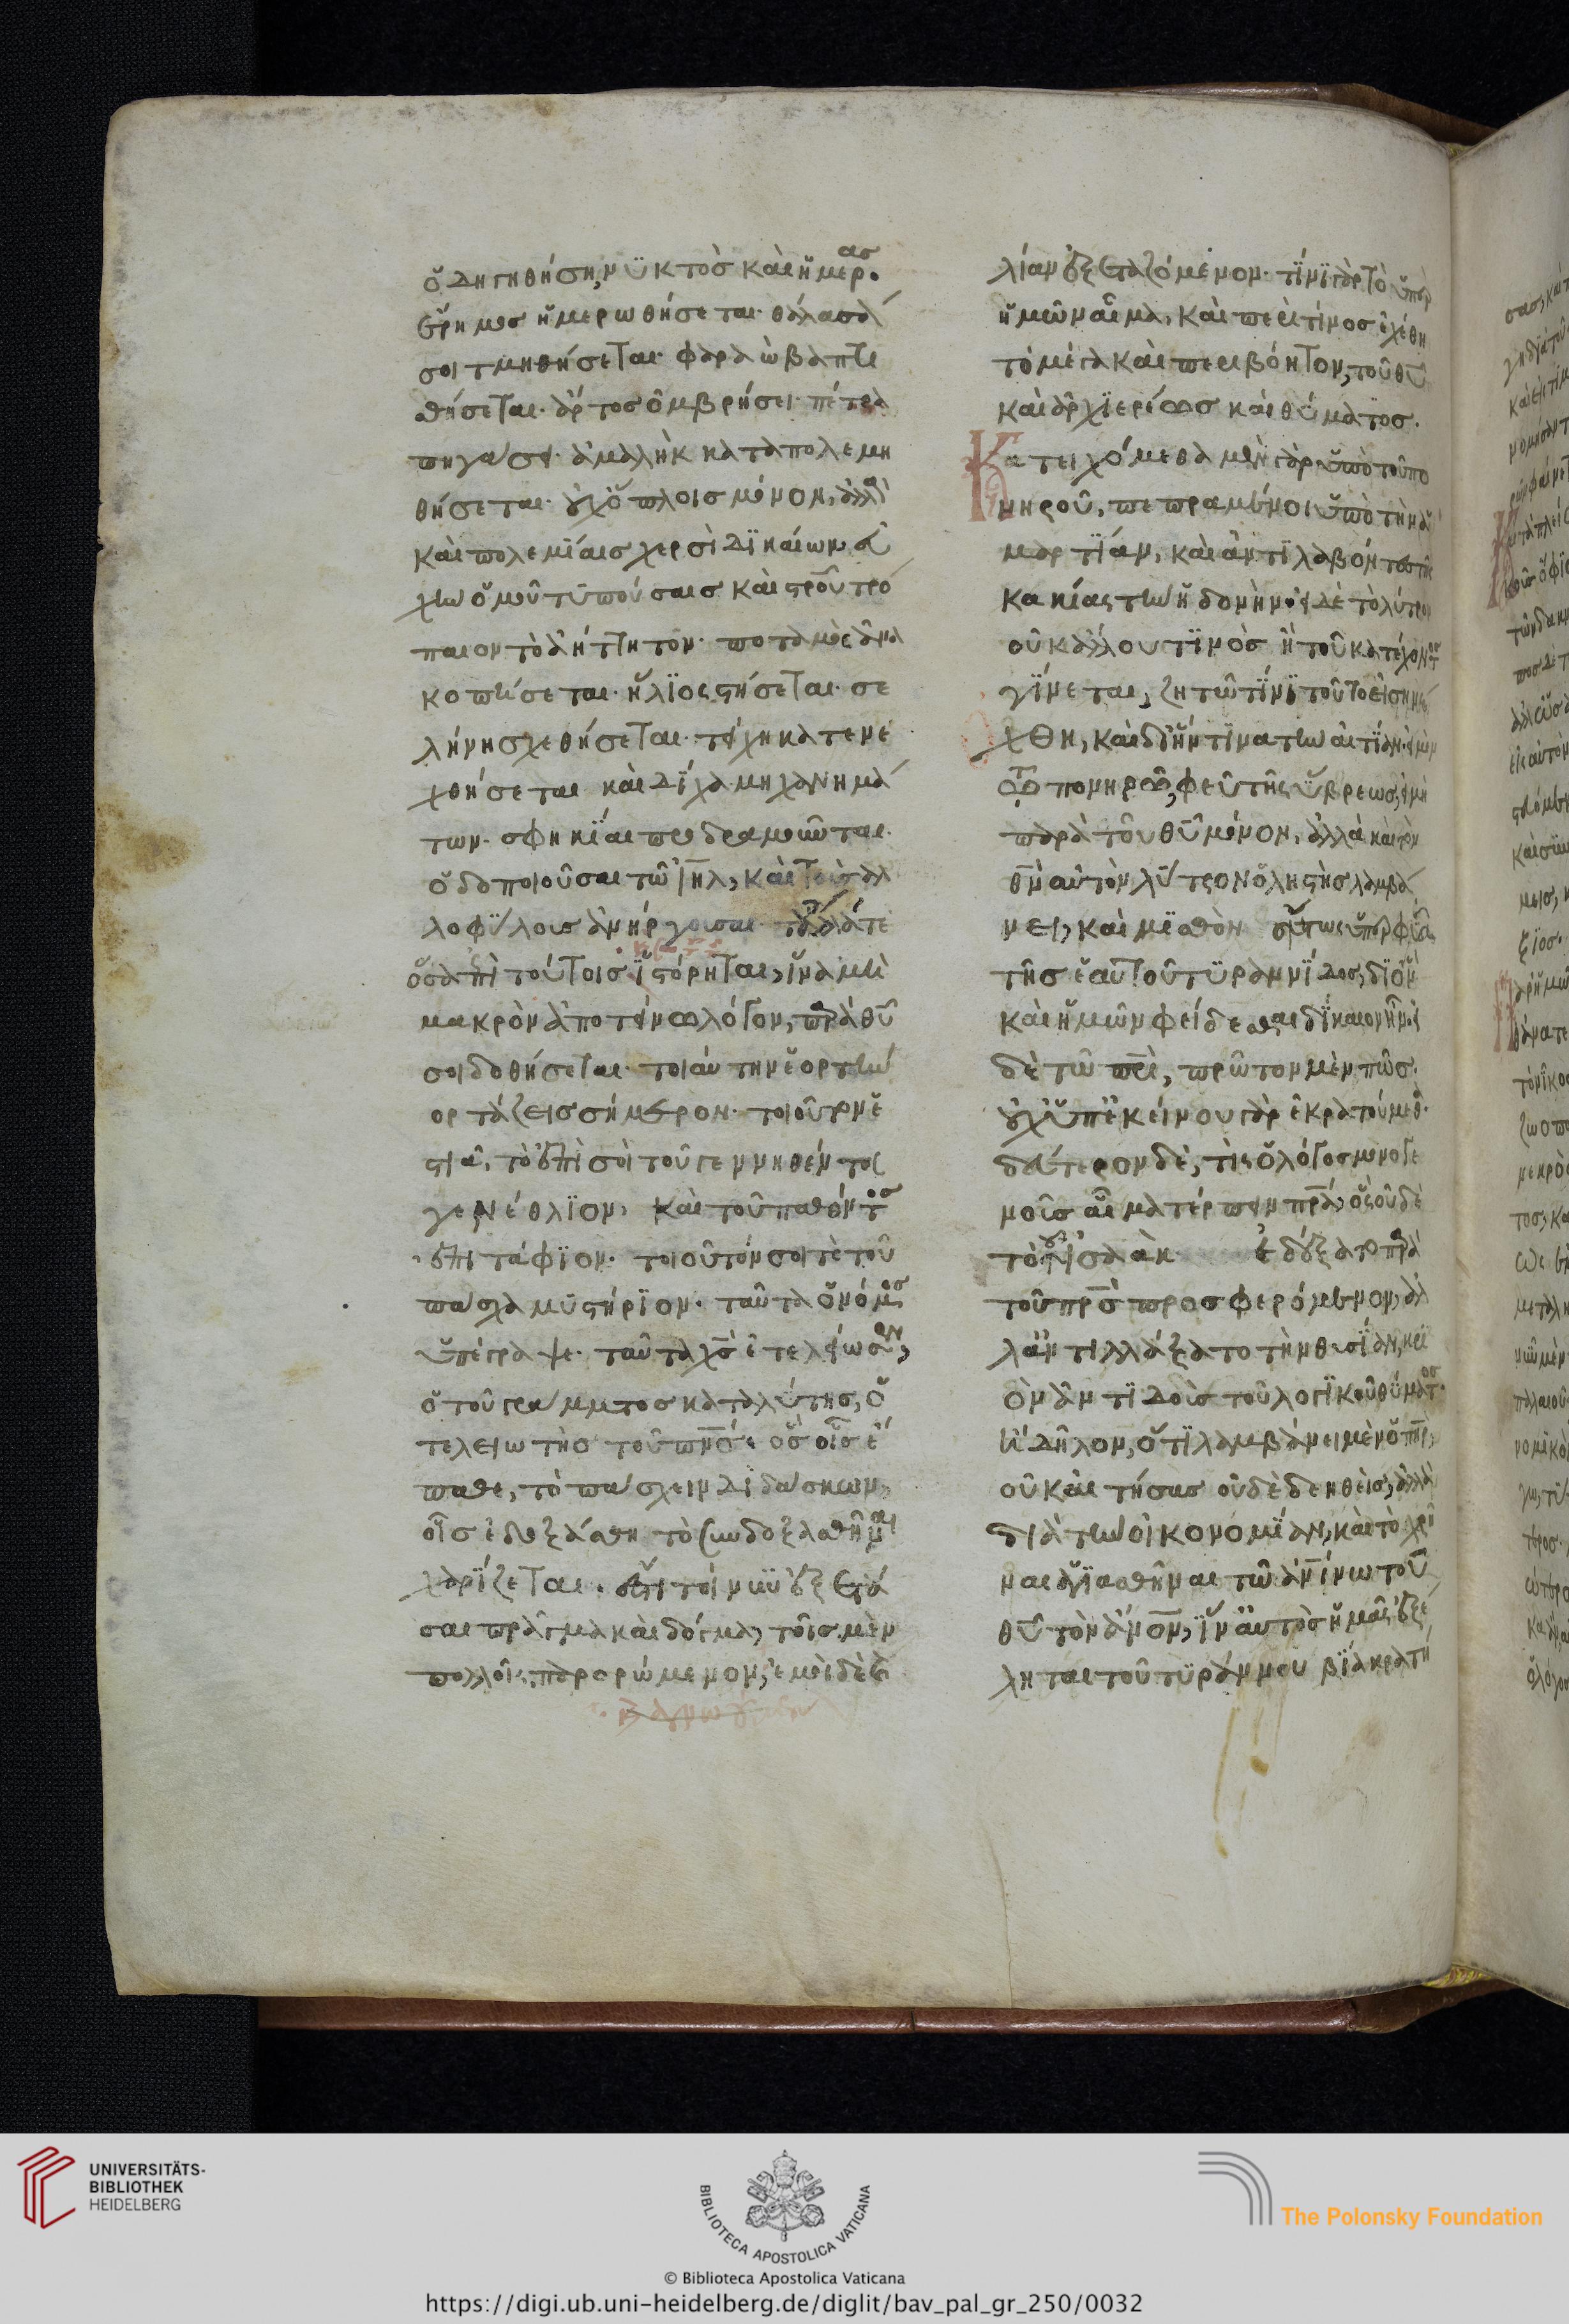 ὁδηγηθήση, νυκτὸς καὶ ἡμέρας.
Ἔρημος ἡμερωθήσεται· θάλασσά
σοι τμηθήσεται· φαραὼ βαπτι
σθήσεται· ἄρτος ὀμβρήσει· πέτρα
πηγάσει· ἀμαλὴκ καταπολεμη
θήσεται· οὐχ ὅπλοις μόνον, ἀλλὰ
καὶ πολεμίαις χερσὶ δικαίων εὐ
χὴν ὁμοῦ τυπούσαις καὶ σταυροῦ τρό
παιον τὸ ἀήττητον· ποταμὸς ἀνα
κοπήσεται· ἥλιος στήσεται· σε
λήνη σχεθήσεται· τείχη κατενε
χθήσεται καὶ δίχα μηχανημά
των· σφηκίαι προδραμοῦνται
ὁδοποιοῦσαι τῶ ιηλ, καὶ τοὺς ἀλ
λοφύλους ἀνείργουσαι· τἄλλά τε
ὅσα ἐπὶ τούτοις ἱστόρηται, ἵνα μὴ
μακρὸν ἀποτείνω λόγον, παρὰ θυ
σοι δοθήσεται· τοιαύτην ἑορτὴν
ἑορτάζεις σήμερον· τοιοῦτον ἑ
στιᾶ, τὸ ἐπὶ σοὶ τοῦ γεννηθέντος
γενέθλιον, καὶ τοῦ παθόντος
ἐπιτάφιον· τοιοῦτόν σοι τὸ τοῦ
πάσχα μυστήριον· ταῦτα ὁ νόμος
ὑπέγραψε· ταῦτα χς ἐτελείωσεν,
ὁ τοῦ γράμματος καταλύτης, ὁ
τελειωτὴς τοῦ πνς· ὃς οἷς ἔ
παθε, τὸ πάσχειν διδάσκων,
οἷς ἐδοξάσθη τὸ συνδοξασθῆναι
χαρίζεται. ἔστι τοίνυν ἐξετά
σαι πρᾶγμα καὶ δόγμα, τοῖς μὲν
πολλοῖς παρορώμενον, ἐμοὶ δὲ καὶ
λίαν ἐξεταζόμενον. τίνι γὰρ τὸ ὑπὲρ
ἡμῶν αἷμα, καὶ περὶ τίνος ἐχέθη
τὸ μέγα καὶ περιβόητον, τοῦ θυ
καὶ ἀρχιερέως καὶ θύματος.
Κατειχόμεθα μὲν γὰρ ὑπὸ τοῦ πο
νηροῦ, πεπραμένοι ὑπὸ τὴν ἁ
μαρτίαν, καὶ ἀντιλαβόντες τῆς
κακίας τὴν ἡδονὴν· εἰ δὲ τὸ λύτρον
οὐκ ἄλλου τινὸς ἢ τοῦ κατέχοντος
γίνεται, ζητῶ τίνι τοῦτο εἰσηνέ
χθη, καὶ δι' ἥντινα τὴν αἰτίαν· εἰ μὲν
τῶ πονηρῶ, φεῦ τῆς ὕβρεως, εἰ μὴ
παρὰ τοῦ θυ μόνον, ἀλλὰ καὶ τὸν
θν αὐτὸν λύτρον ὁ ληστὴς λαμβά
νει, καὶ μισθὸν οὕτως ὑπερφυᾶ
τῆς ἑαυτοῦ τυραννίδος, δι' ὃν
καὶ ἡμῶν φείδεσθαι δίκαιον ἦν· εἰ
δὲ τῶ πρι, πρῶτον μὲν πῶς.
οὐχ ὑπ' ἐκείνου γὰρ ἐκρατούμεθα.
δεύτερον δὲ, τίς ὁ λόγος μονογε
νοῦς αἷμα τέρπειν πρα, ὃς οὐδὲ
τὸν ἰσαὰκ ἐδέξατο παρὰ
τοῦ πρς προσφερόμενον, ἀλ
λ' ἀντηλλάξατο τὴν θυσίαν, κρι
ὸν ἀντιδοὺς τοῦ λογικοῦ θύματος·
ἢ δῆλον, ὅτι λαμβάνει μὲν ὁ πηρ,
οὐκ αἰτήσας οὐδὲ δεηθεὶς, ἀλλὰ
διὰ τὴν οἰκονομίαν, καὶ τὸ χρῆ
ναι ἁγιασθῆναι τῶ ἀνίνω τοῦ
θυ τὸν ἄνον, ἵν' αὐτὸς ἡμᾶς ἐξέ
ληται τοῦ τυράννου βία κρατή
UNIVERSITÄTS-
BIBLIOTHEK
HEIDELBERG
BIBLIOTECA APOSTOLICA VATICANA
The Polonsky Foundation
© Biblioteca Apostolica Vaticana
https://digi.ub.uni-heidelberg.de/diglit/bav_pal_gr_250/0032